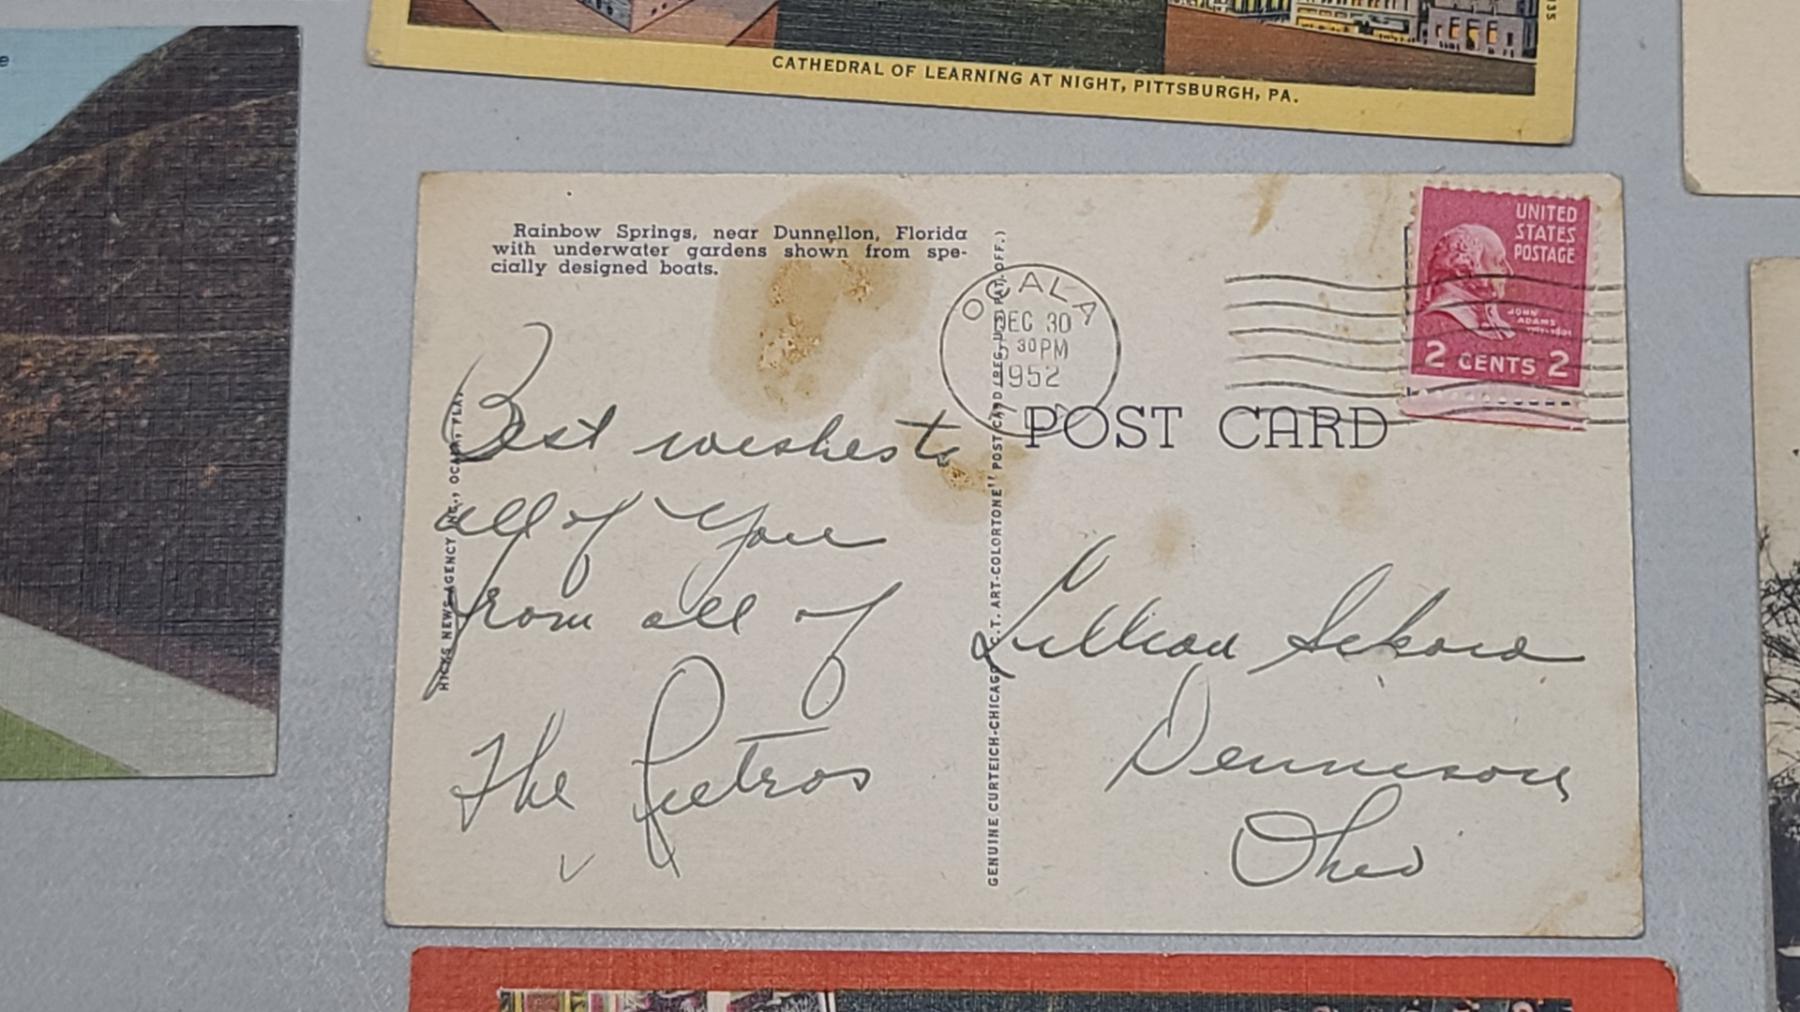 e
35
CATHEDRAL OF LEARNING AT NIGHT, PITTSBURGH, PA.
Rainbow Springs, near Dunnellon, Florida
with underwater gardens shown from spe-
cially designed boats.
OCALA
DEC 30
5 30 PM
1952
UNITED
STATES
POSTAGE
JOHN
ADAMS
2 CENTS 2
POST CARD
HICKS NEWS AGENCY INC., OCALA, FLA.
GENUINE CURTEICH-CHICAGO "C. T. ART-COLORTONE" POST CARD (REG. U. S. PAT. OFF.)
Best wishes to
all of you
from all of
The Pietros
Lillian
Dennison,
Ohio